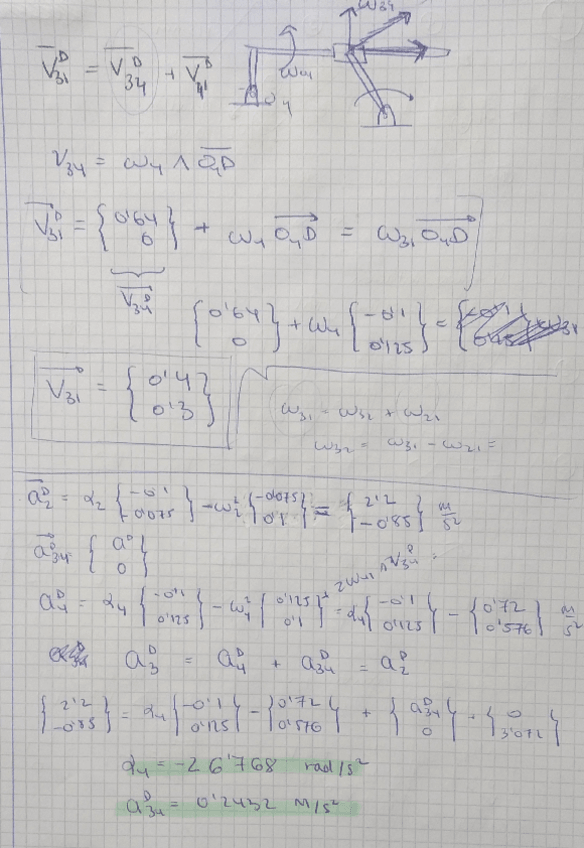 ω34
V̄31^D = V̄34^D + V̄41^D
ω4
O4
V34 = ω4 ∧ O4D
V31^D = {0'64 0} + ω4 O4D = ω31 O4D
V34^D
{0'64 0} + ω4 {-0'1 0'125} =
V31^D = {0'4 0'3}
ω31 = ω32 + ω21
ω32 = ω31 - ω21 =
a2^D = α2 {-0'1 -0'075} - ω2² {-0'075 0'1} = {2'2 -0'85} m/s²
a34^D {a^D 0}
2ω41 ∧ V34^D =
a4^D = α4 {-0'1 0'125} - ω4² {0'125 0'1} = α4 {-0'1 0'125} - {0'72 0'576} m/s²
a3^D = a4^D + a34^D = a2^D
{2'2 -0'85} = α4 {-0'1 0'125} - {0'72 0'576} + {a34^D 0} + {0 3'072}
α4 = -26'768 rad/s²
a34^D = 0'2432 m/s²